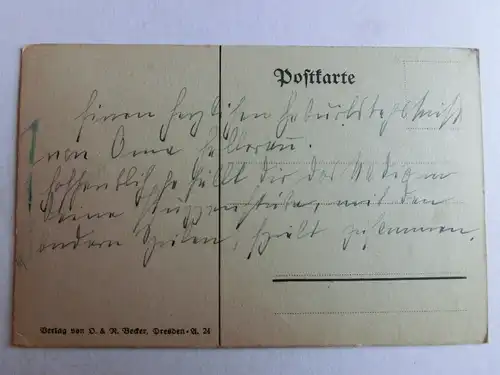 Postkarte
Einen herzlichen Geburtstagskuß
von Oma Hellerau.
hoffentlich gefällt dir das
deine mit den
andern spielt zusammen.
Verlag von O. & R. Becker, Dresden-A. 24